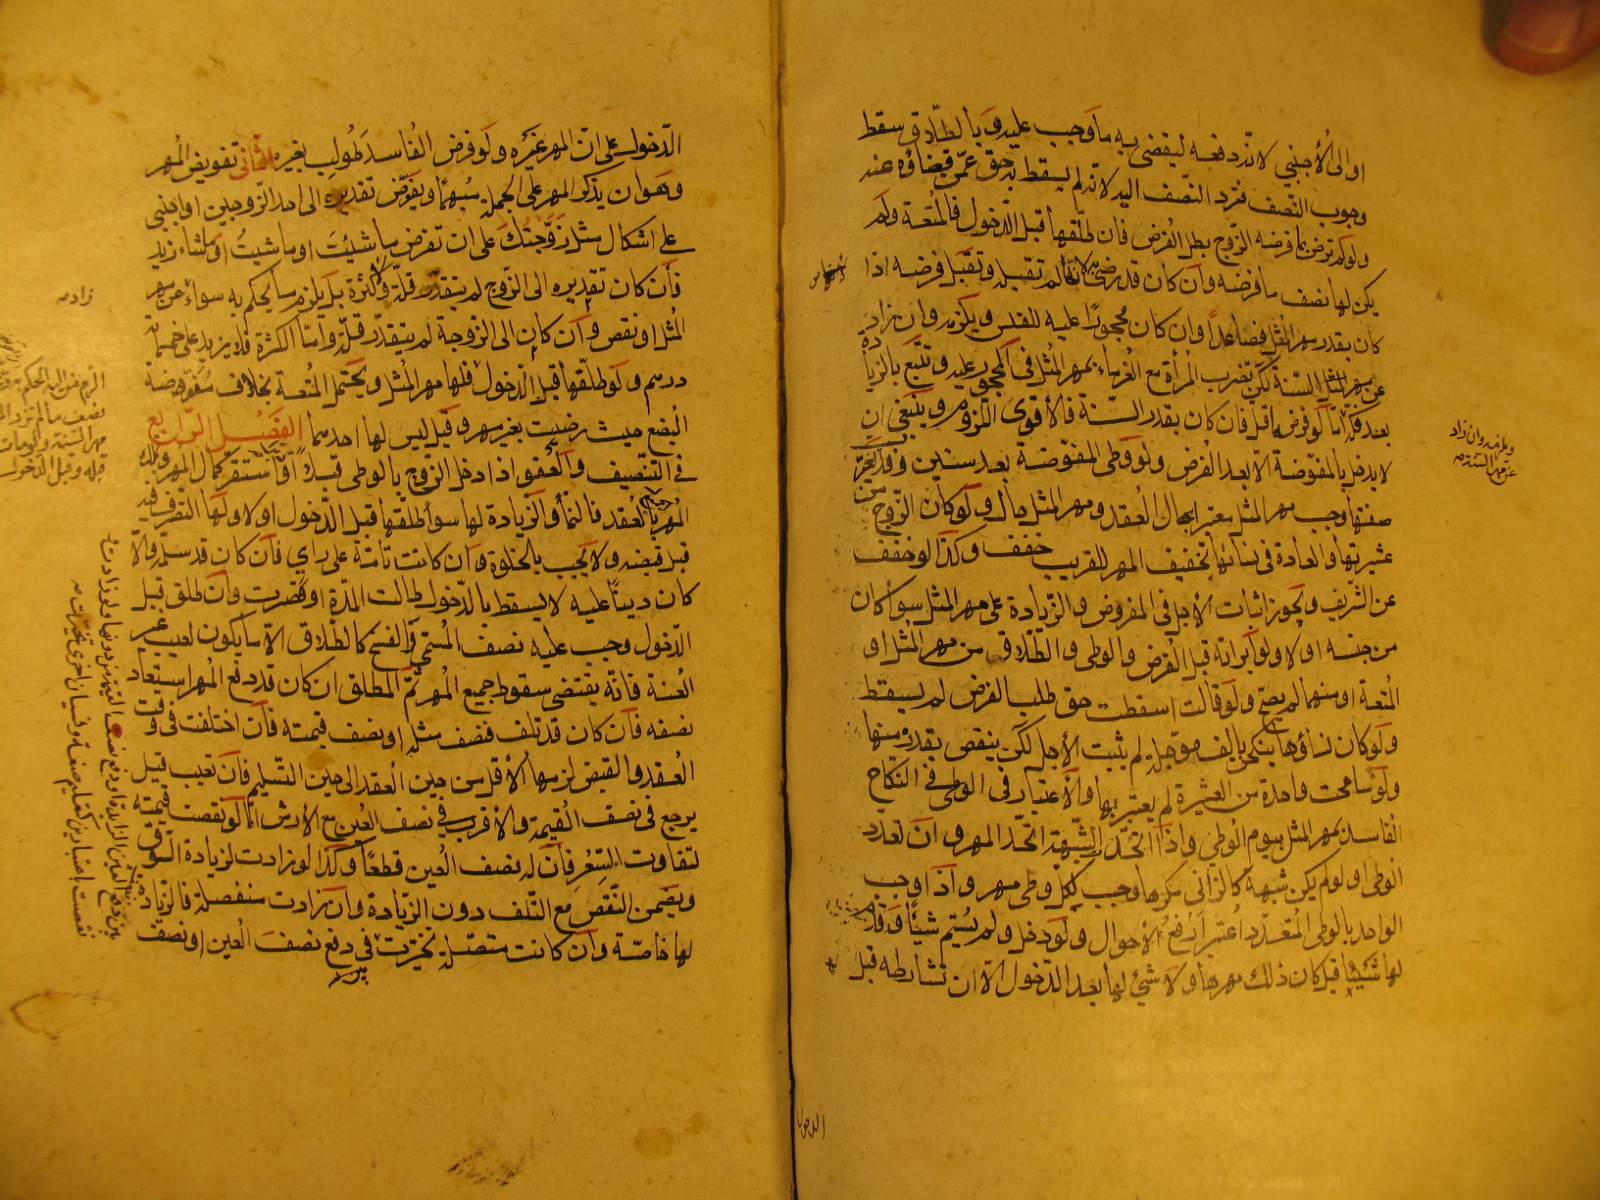 او الى الأجنبي لانه دفعه ليقضى به ما وجب عليه و بالطلاق سقط
وجوب النصف فترد النصف اليه لانه لم يسقط به حق عمن قضاؤه عنه
ولو لم ترض بما فرضه الزوج بطل الفرض فان طلقها قبل الدخول فالمتعة ولم
يكن لها نصف ما فرضه وان كان قد رضي لم تقبل وتقبل فرضه اذا
كان بقدر مهر المثل فصاعدا وان كان محجورا عليه للفلس ويلزمه وان زاد
عن مهر المثل السنة لكن تضرب المرأة مع الغرماء بمهر المثل في المحجور عليه وتتبع بالزيادة
بعد فكه اما لو فرضه اقل فان كان بقدر السنة فالأقوى اللزوم وينبغي ان
لا يدخل بالمفوضة الا بعد الفرض ولو وطى المفوضة بعد سنين وقد تغيرت
صفتها وجب مهر المثل معتبرا بحال العقد ومهر المثل حال ولو كان الزوج من
عشيرتها والعادة في نسائها تخفيف المهر للقريب خفف وكذا لو خفف
عن الشريف ويجوز اثبات الأجل في المفروض والزيادة على مهر المثل سواء كان
من جنسه او لا ولو ابرأته قبل الفرض والوطى والطلاق من مهر المثل او
المتعة او منهما لم يصح ولو قالت اسقطت حق طلب الفرض لم يسقط
ولو كان نساؤها ينكحن بالف مؤجلة لم يثبت الأجل لكن ينقص بقدره منها
ولو سامحت واحدة من العشيرة لم يعتبر بها والاعتبار في الوطى في النكاح
الفاسد بمهر المثل بيوم الوطى واذا اتحدت الشبهة اتحد المهر وان تعدد
الوطى او لو لم يكن شبهة كالزاني مكرها وجب لكل وطى مهر واذا وجب
الواحد بالوطى المتعدد اعتبر ارفع الأحوال ولو دخل ولم يسم شيئا وقدم
لها شيئا قبل كان ذلك مهرها ولا شئ لها بعد الدخول الا ان تشارطه قبل
الدخول
الدخول على ان المهر غيره ولو فرض الفاسد طولب بغيره الثاني تفويض المهر
وهو ان يذكر المهر على الجملة مبهما ويفوض تقديره الى احد الزوجين او اجنبي
على اشكال مثل زوجتك على ان تفرض ما شئت او ما شيت او ما شاء زيد
فان كان تقديره الى الزوج لم يتقدر قلة ولا كثرة بل يلزم ما يحكم به سواء عن مهر
المثل او نقص وان كان الى الزوجة لم يتقدر قلة واما الكثرة فلا يزيد على خمسمائة
درهم ولو طلقها قبل الدخول فلها مهر المثل ويحتمل المتعة بخلاف مفوضة
البضع حيث رضيت بغير مهر وقيل ليس لها احدهما الفصل الرابع
في التنصيف والعفو اذا دخل الزوج بالوطى قبلا او دبرا استقر كمال المهر وتملك
المهر بالعقد فالنماء والزيادة لها سواء طلقها قبل الدخول او لا ولها التصرف فيه
قبل قبضه ولا يجب بالخلوة وان كانت تامة على راي فان كان قد سلمه والا
كان دينا عليه لا يسقط بالدخول طالت المدة او قصرت وان طلق قبل
الدخول وجب عليه نصف المسمى والفسخ كالطلاق الا ما يكون لعيب غير
العنة فانه يقتضى سقوط جميع المهر ثم المطلق ان كان قد دفع المهر استعاد
نصفه فان كان قد تلف فنصف مثله او نصف قيمته فان اختلفت في وقت
العقد والقبض لزمها الأقل من حين العقد الى حين التسليم فان تعيب قيل
يرجع في نصف القيمة والأقرب في نصف العين مع الأرش اما لو نقصت قيمته
لتفاوت السعر فان له نصف العين قطعا وكذا لو زادت لزيادة السوق
ويضمن النقص مع التلف دون الزيادة وان زادت منفصلة فالزيادة
لها خاصة وان كانت متصلة تخيرت في دفع نصف العين او نصف